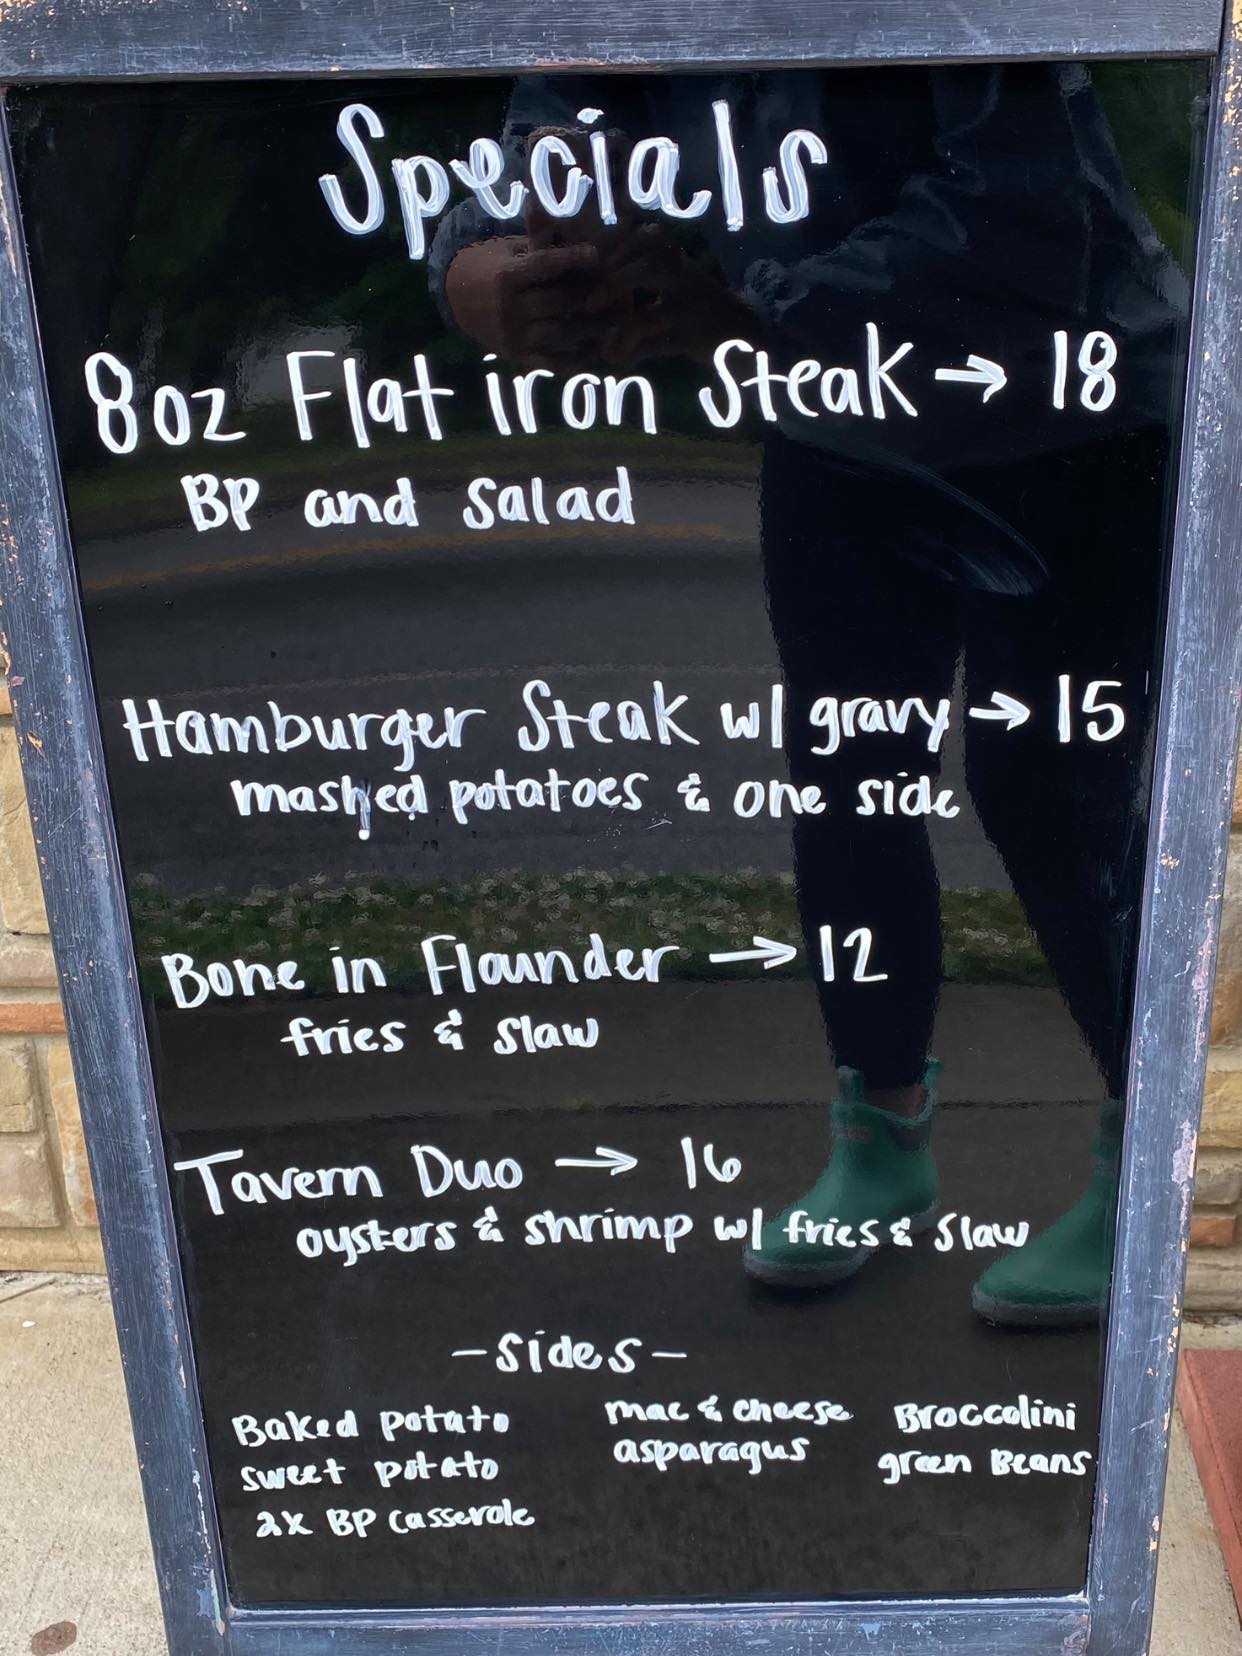 Specials
8oz Flat iron Steak → 18
BP and salad
Hamburger Steak w/ gravy → 15
mashed potatoes & one side
Bone in Flounder → 12
fries & slaw
Tavern Duo → 16
oysters & shrimp w/ fries & slaw
- sides -
Baked potato mac & cheese Broccolini
sweet potato asparagus green Beans
2x BP casserole